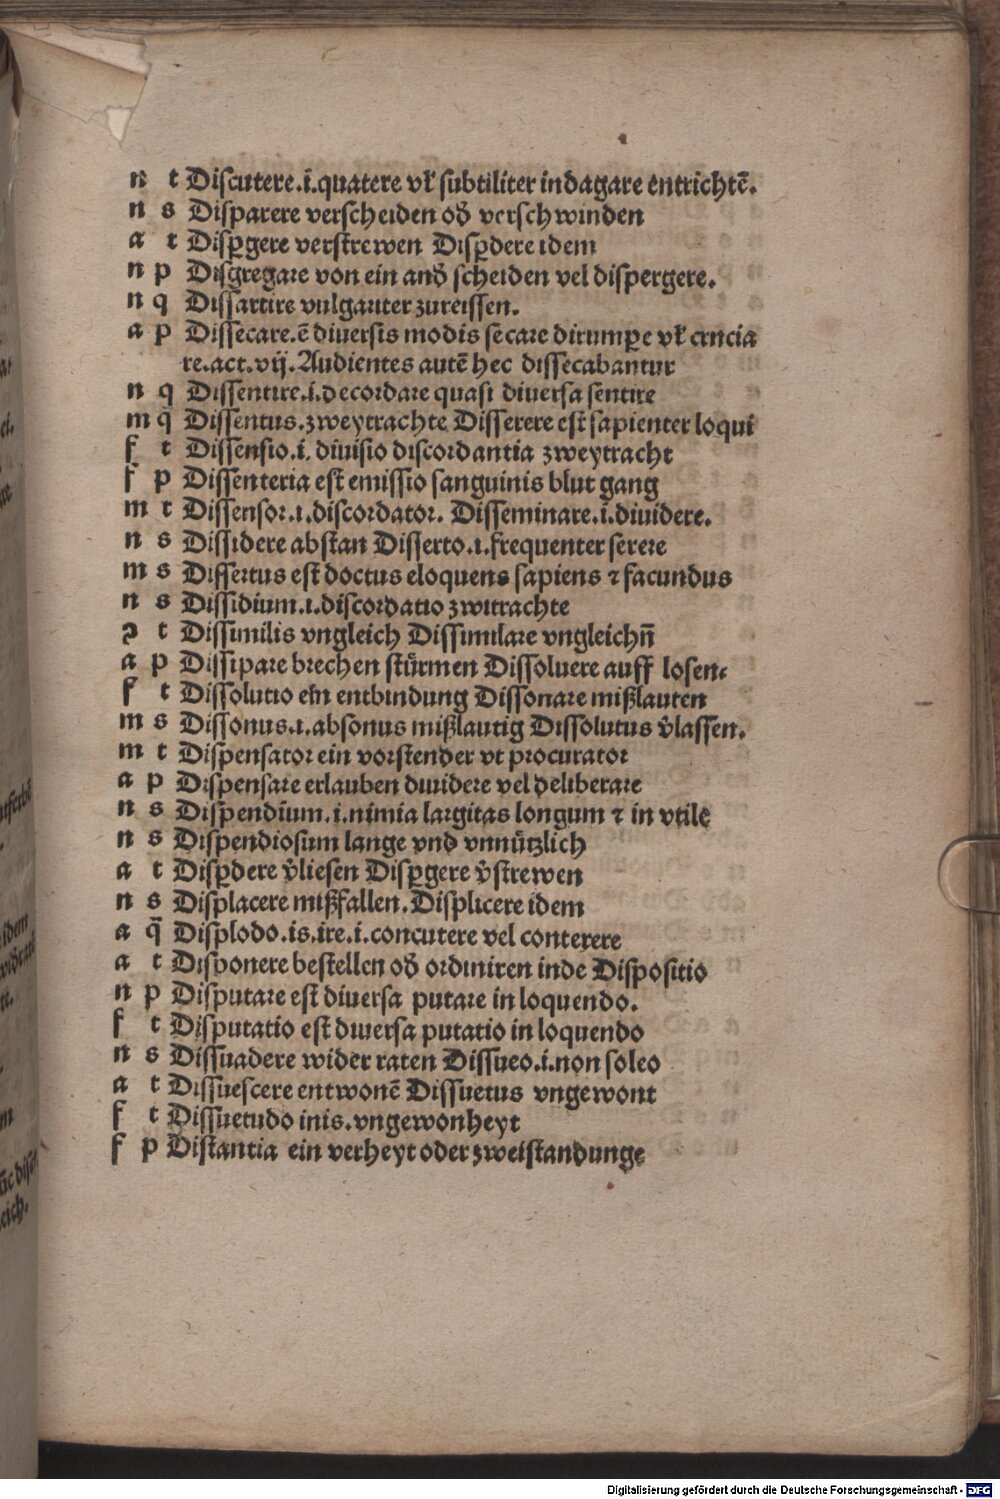 n t Discutere.i̅.quatere vł subtiliter indagare entrichtē.
n s Disparere verscheiden oď verschwinden
a t Disꝑgere verstrewen Disꝑdere idem
n p Disgregare von ein anď scheiden vel dispergere.
n q Dissartire vulgariter zureissen.
a p Dissecare.ē diuersis modis secare dirumꝑe vł crucia
re.act.vij.Audientes autē hec dissecabantur
n q Dissentire.i.decordare quasi diuersa sentire
m q̄ Dissentus.zweytrachte Disserere est sapienter loqui
f t Dissensio.i. diuisio discordantia zweytracht
f p Dissenteria est emissio sanguinis blut gang
m t Dissensor.i.discordator. Disseminare.i̅.diuidere.
n s Dissidere abstan Disserto.i.frequenter serere
m s Dissertus est doctus eloquens sapiens ⁊ facundus
n s Dissidium.i.discordatio zwitrachte
ɔ t Dissimilis vngleich Dissimilare vngleichn̄
a p Dissipare brechen stürmen Dissoluere auff losen.
f t Dissolutio ein entbindung Dissonare mißlauten
m s Dissonus.i.absonus mißlautig Dissolutus v̓lassen.
m t Dispensator ein vorstender vt procurator
a p Dispensare erlauben diuidere vel deliberare
n s Dispendium.i.nimia largitas longum ⁊ in vtile
n s Dispendiosum lange vnd vnnützlich
a t Disꝑdere v̓liesen Disꝑgere v̓strewen
n s Displacere mißfallen.Displicere idem
a q̄ Displodo.is.ire.i.concutere vel conterere
a t Disponere bestellen oď ordiniren inde Dispositio
n p Disputare est diuersa putare in loquendo.
f t Disputatio est diuersa putatio in loquendo
n s Dissuadere wider raten Dissueo.i.non soleo
a t Dissuescere entwonē Dissuetus vngewont
f t Dissuetudo inis.vngewonheyt
f p Distantia ein verheyt oder zweistandunge
Digitalisierung gefördert durch die Deutsche Forschungsgemeinschaft - DFG